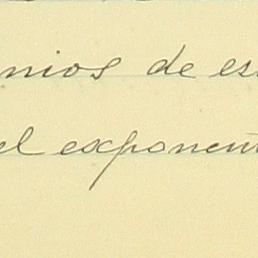 nios de es
el exponent